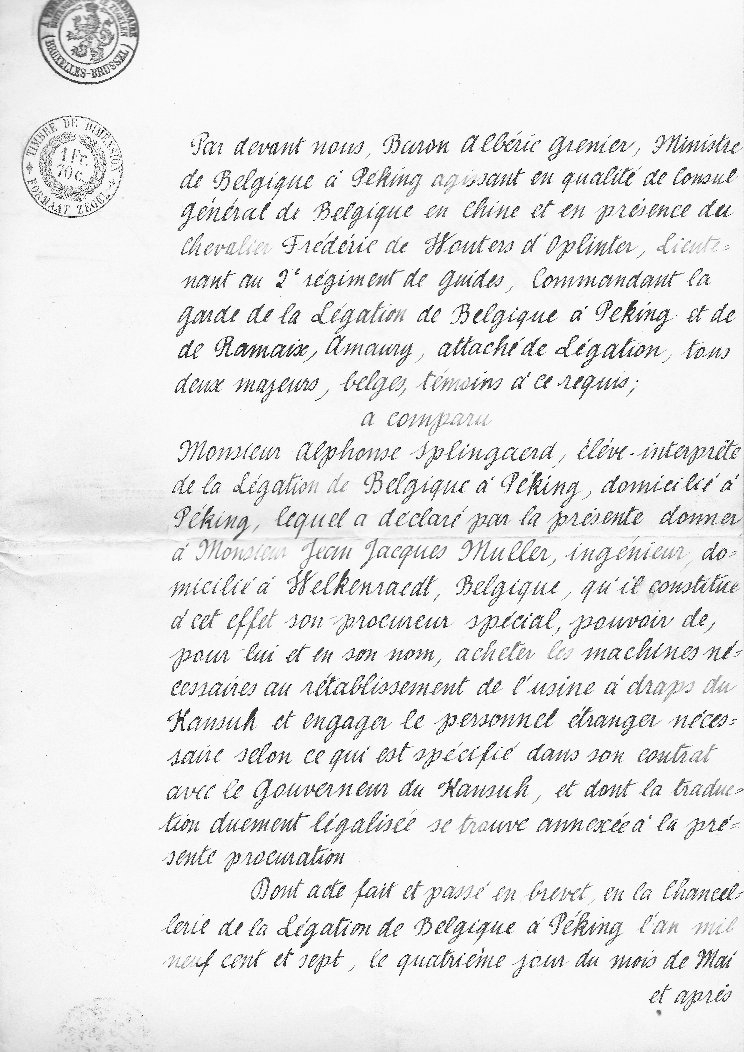 BRUXELLES-BRUSSEL
TIMBRE DE DIMENSION
1 FR.
70 C.
FORMAAT ZEGEL
Par devant nous, Baron Albéric Grenier, Ministre
de Belgique à Péking agissant en qualité de Consul
Général de Belgique en Chine et en présence du
Chevalier Frédéric de Wouters d'Oplinter, Lieute-
nant au 2e régiment de Guides, Commandant la
garde de la Légation de Belgique à Péking et de
de Ramaix, Amaury, attaché de Légation, tous
deux majeurs, belges, témoins à ce requis;
a comparu
Monsieur Alphonse Splingaerd, élève-interprète
de la Légation de Belgique à Péking, domicilié à
Péking, lequel a déclaré par la présente donner
à Monsieur Jean Jacques Muller, ingénieur, do-
micilié à Welkenraedt, Belgique, qu'il constitue
à cet effet son procureur spécial, pouvoir de,
pour lui et en son nom, acheter les machines né-
cessaires au rétablissement de l'usine à draps du
Kansuh et engager le personnel étranger néces-
saire selon ce qui est spécifié dans son contrat
avec le Gouverneur du Kansuh, et dont la traduc-
tion duement légalisée se trouve annexée à la pré-
sente procuration
Dont acte fait et passé en brevet, en la Chancel-
lerie de la Légation de Belgique à Péking l'an mil
neuf cent et sept, le quatrième jour du mois de Mai
et après